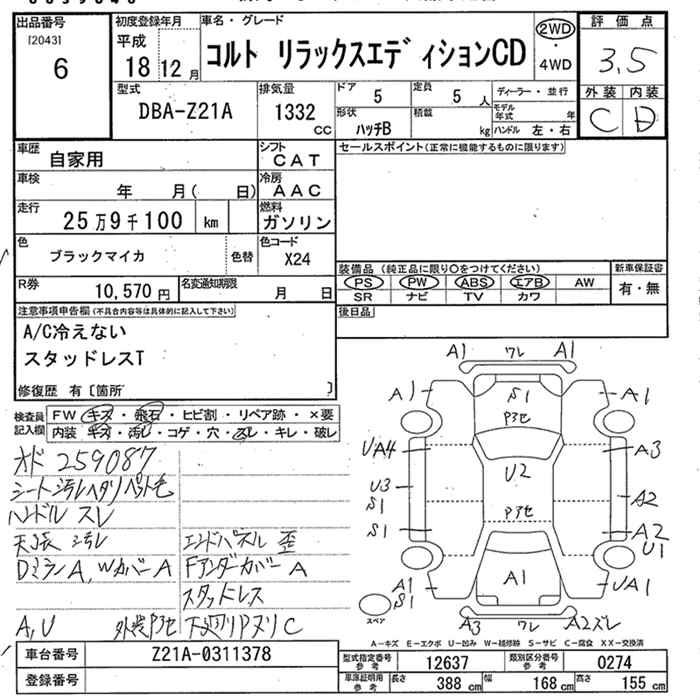 出品番号
[2043]
6
初度登録年月
平成
18 12 月
車名・グレード
コルト リラックスエディションCD
2WD
・
4WD
評価点
3.5
外装 内装
C D
型式
DBA-Z21A
排気量
1332 cc
ドア 5
定員 5 人
形状 ハッチB
積載 kg
ディーラー・並行
モデル年式 年
ハンドル 左・右
車歴 自家用
シフト CAT
車検 年 月( 日)
冷房 AAC
走行 25万9千100 km
燃料 ガソリン
色 ブラックマイカ 色替
色コード X24
R券 10,570 円
名変通知期限 月 日
セールスポイント(正常に機能するものに限ります)
装備品 (純正品に限り○をつけてください)
PS PW ABS エアB AW
SR ナビ TV カワ
新車保証書
有・無
後日品
注意事項申告欄(不具合内容等は具体的に記入して下さい)
A/C冷えない
スタッドレスT
修復歴 有〔箇所 〕
検査員記入欄
FW キズ・飛石・ヒビ割・リペア跡・×要
内装 キズ・汚レ・コゲ・穴・スレ・キレ・破レ
オド 259087
シート汚レヘタリペット毛
ハンドル スレ
天張 汚レ
DミラーA, WカバーA
A,U 外装P3セ 下廻りPヌリC
エンドパネル 歪
FアンダーカバーA
スタッドレス
A1 ワレ A1
A1 S1 A1
P3セ
UA4 A3
U2
U3 S1 A2
P3セ
S1 A2
U1
A1
A1 S1 UA1
スペア
A3 ワレ A2ズレ
A-キズ E-エクボ U-凹み W-補修跡 S-サビ C-腐食 XX-交換済
車台番号 Z21A-0311378
登録番号
型式指定番号 参考 12637
類別区分番号 参考 0274
車庫証明用 参考 長さ 388 cm 幅 168 cm 高さ 155 cm